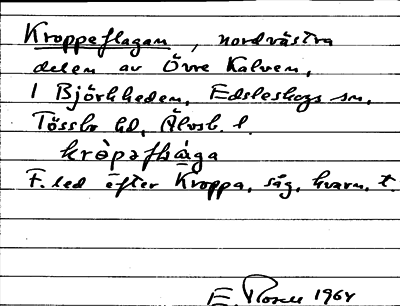 Kroppeflagan, nordvästra
delen av Övre Kalven,
1 Björkheden, Edsleskogs sn,
Tössbo hd, Älvsb. l.
kròpəflàga
F.led efter Kroppa, såg, kvarn, t.
E. Rosell 1964